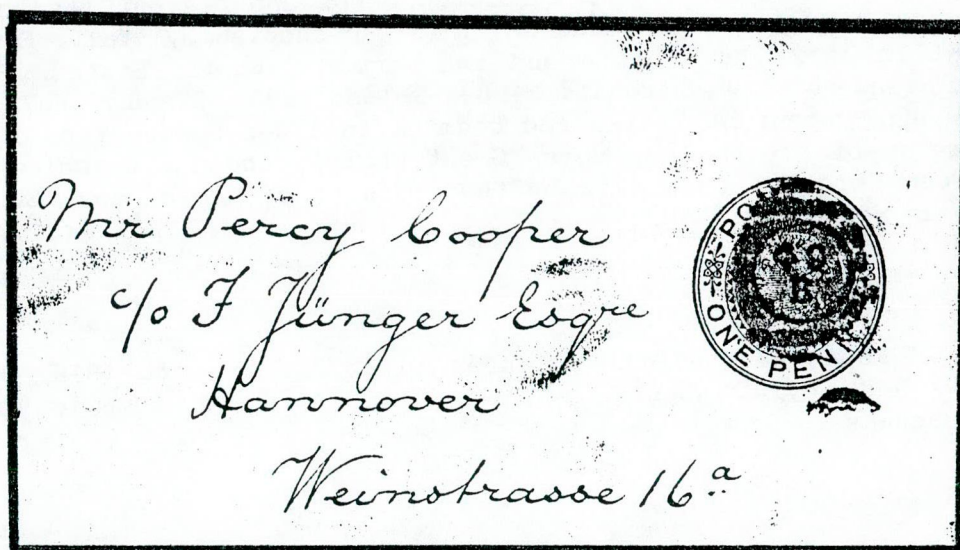 Mr Percy Cooper
c/o F Jünger Esqre
Hannover
Weinstrasse 16a
ONE PENNY